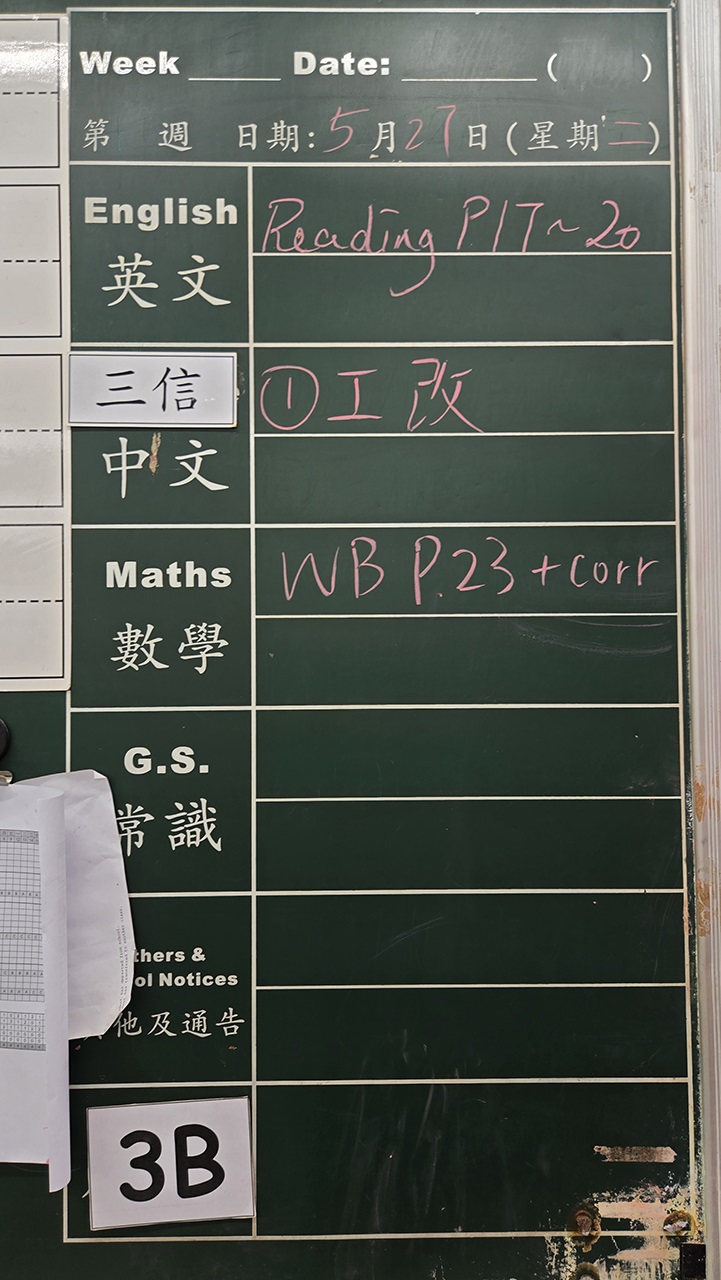 Week ____ Date: ______ ( )
第 週 日期: 5月27日 (星期二)
English Reading P17~20
英文
三信 ①工改
中文
Maths WB P.23 + corr
數學
G.S.
常識
thers &
ol Notices
他及通告
3B